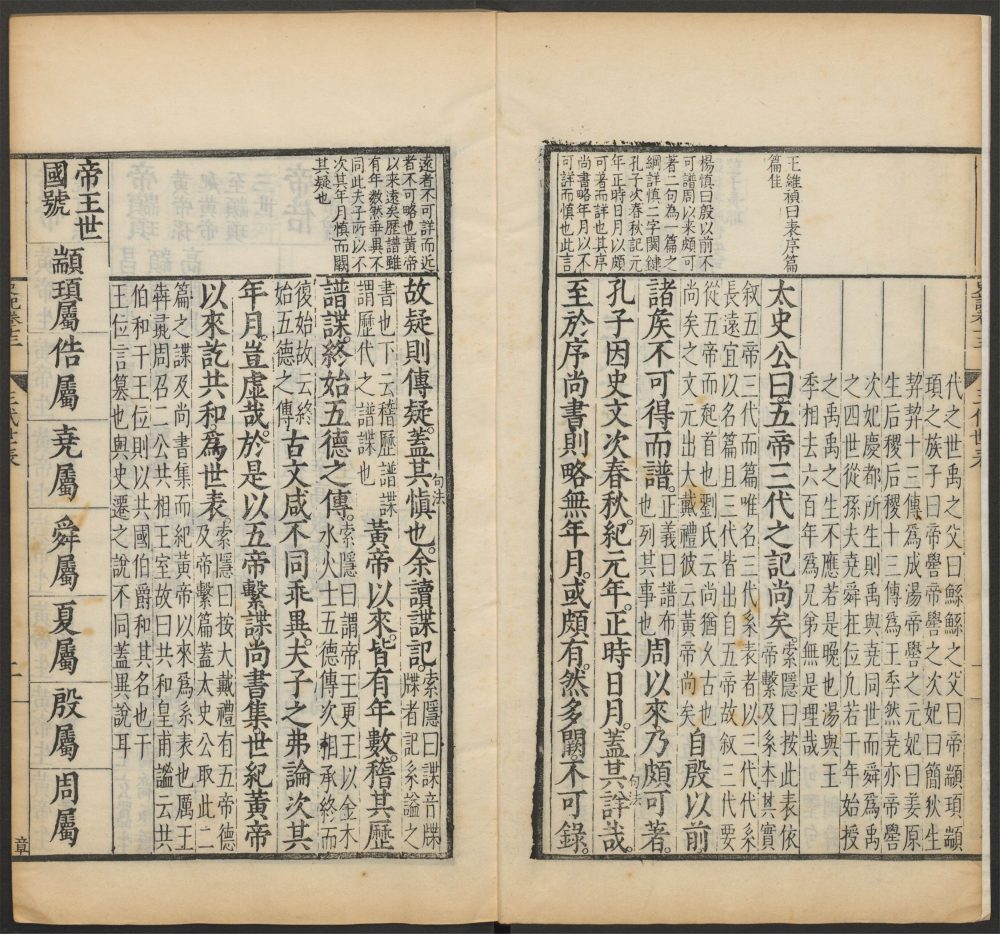 王維禎曰表序篇
篇佳
楊慎曰殷以前不
可譜周以來頗可
著二句為一篇之
綱詳慎二字関鍵
孔子次春秋記元
年正時日月以頗
可著而詳也其序
尚書略年月以不
可詳而慎也此言
代之世禹之父曰鯀鯀之父曰帝顓頊顓
頊之族子曰帝嚳帝嚳之次妃曰簡狄生
契契十三傳爲成湯帝嚳之元妃曰姜原
生后稷后稷十三傳爲王季然堯亦帝嚳
次妃慶都所生則禹與堯同世而舜爲禹
之四世從孫夫堯舜在位九若干年始授
之禹禹之生不應若是晚也湯與王
季相去六百年爲兄弟無是理哉
太史公曰。五帝三代之記尚矣。索隱曰按此表依
帝繫及系本其實
叙五帝三代而篇唯名三代系表者以三代代系
長遠宜以名篇且三代皆出自五帝故叙三代要
從五帝而起首也劉氏云尚猶久古也
尚矣之文元出大戴禮彼云黃帝尚矣
自殷以前
諸矦不可得而譜。正義曰譜布
也列其事也
周以來乃頗可著。
孔子因史文次春秋。紀元年。正時日月。蓋其詳哉。
句法
至於序尚書則略無年月。或頗有。然多闕。不可録。
遠者不可詳而近
者不可略也黄帝
以来遠矣歷譜雖
有年數然乖異不
同此夫子所以不
次其年月慎而闕
其疑也
故疑則傳疑。蓋其慎也。余讀諜記。索隱曰諜音牒
牒者記系謚之
句法
書也下云稽歷譜諜
謂歷代之譜諜也
黃帝以來。皆有年數。稽其歷
譜諜。終始五德之傳。索隱曰謂帝王更王以金木
水火土五德傳次相承終而
復始故云終
始五德之傳
古文咸不同乖異。夫子之弗論次其
年月。豈虛哉。於是以五帝繫諜尚書集世紀黃帝
以來訖共和。爲世表。索隱曰按大戴禮有五帝德
及帝繫篇蓋太史公取此二
篇之諜及尚書集而紀黃帝以來爲系表也厲王
犇彘周召二公共相王室故曰共和皇甫謐云共
伯和干王位則以共國伯爵和其名也干
王位言簒也與史遷之說不同蓋異說耳
帝王世
國號
顓頊屬
俈屬
堯屬
舜屬
夏屬
殷屬
周屬
三代世表
章